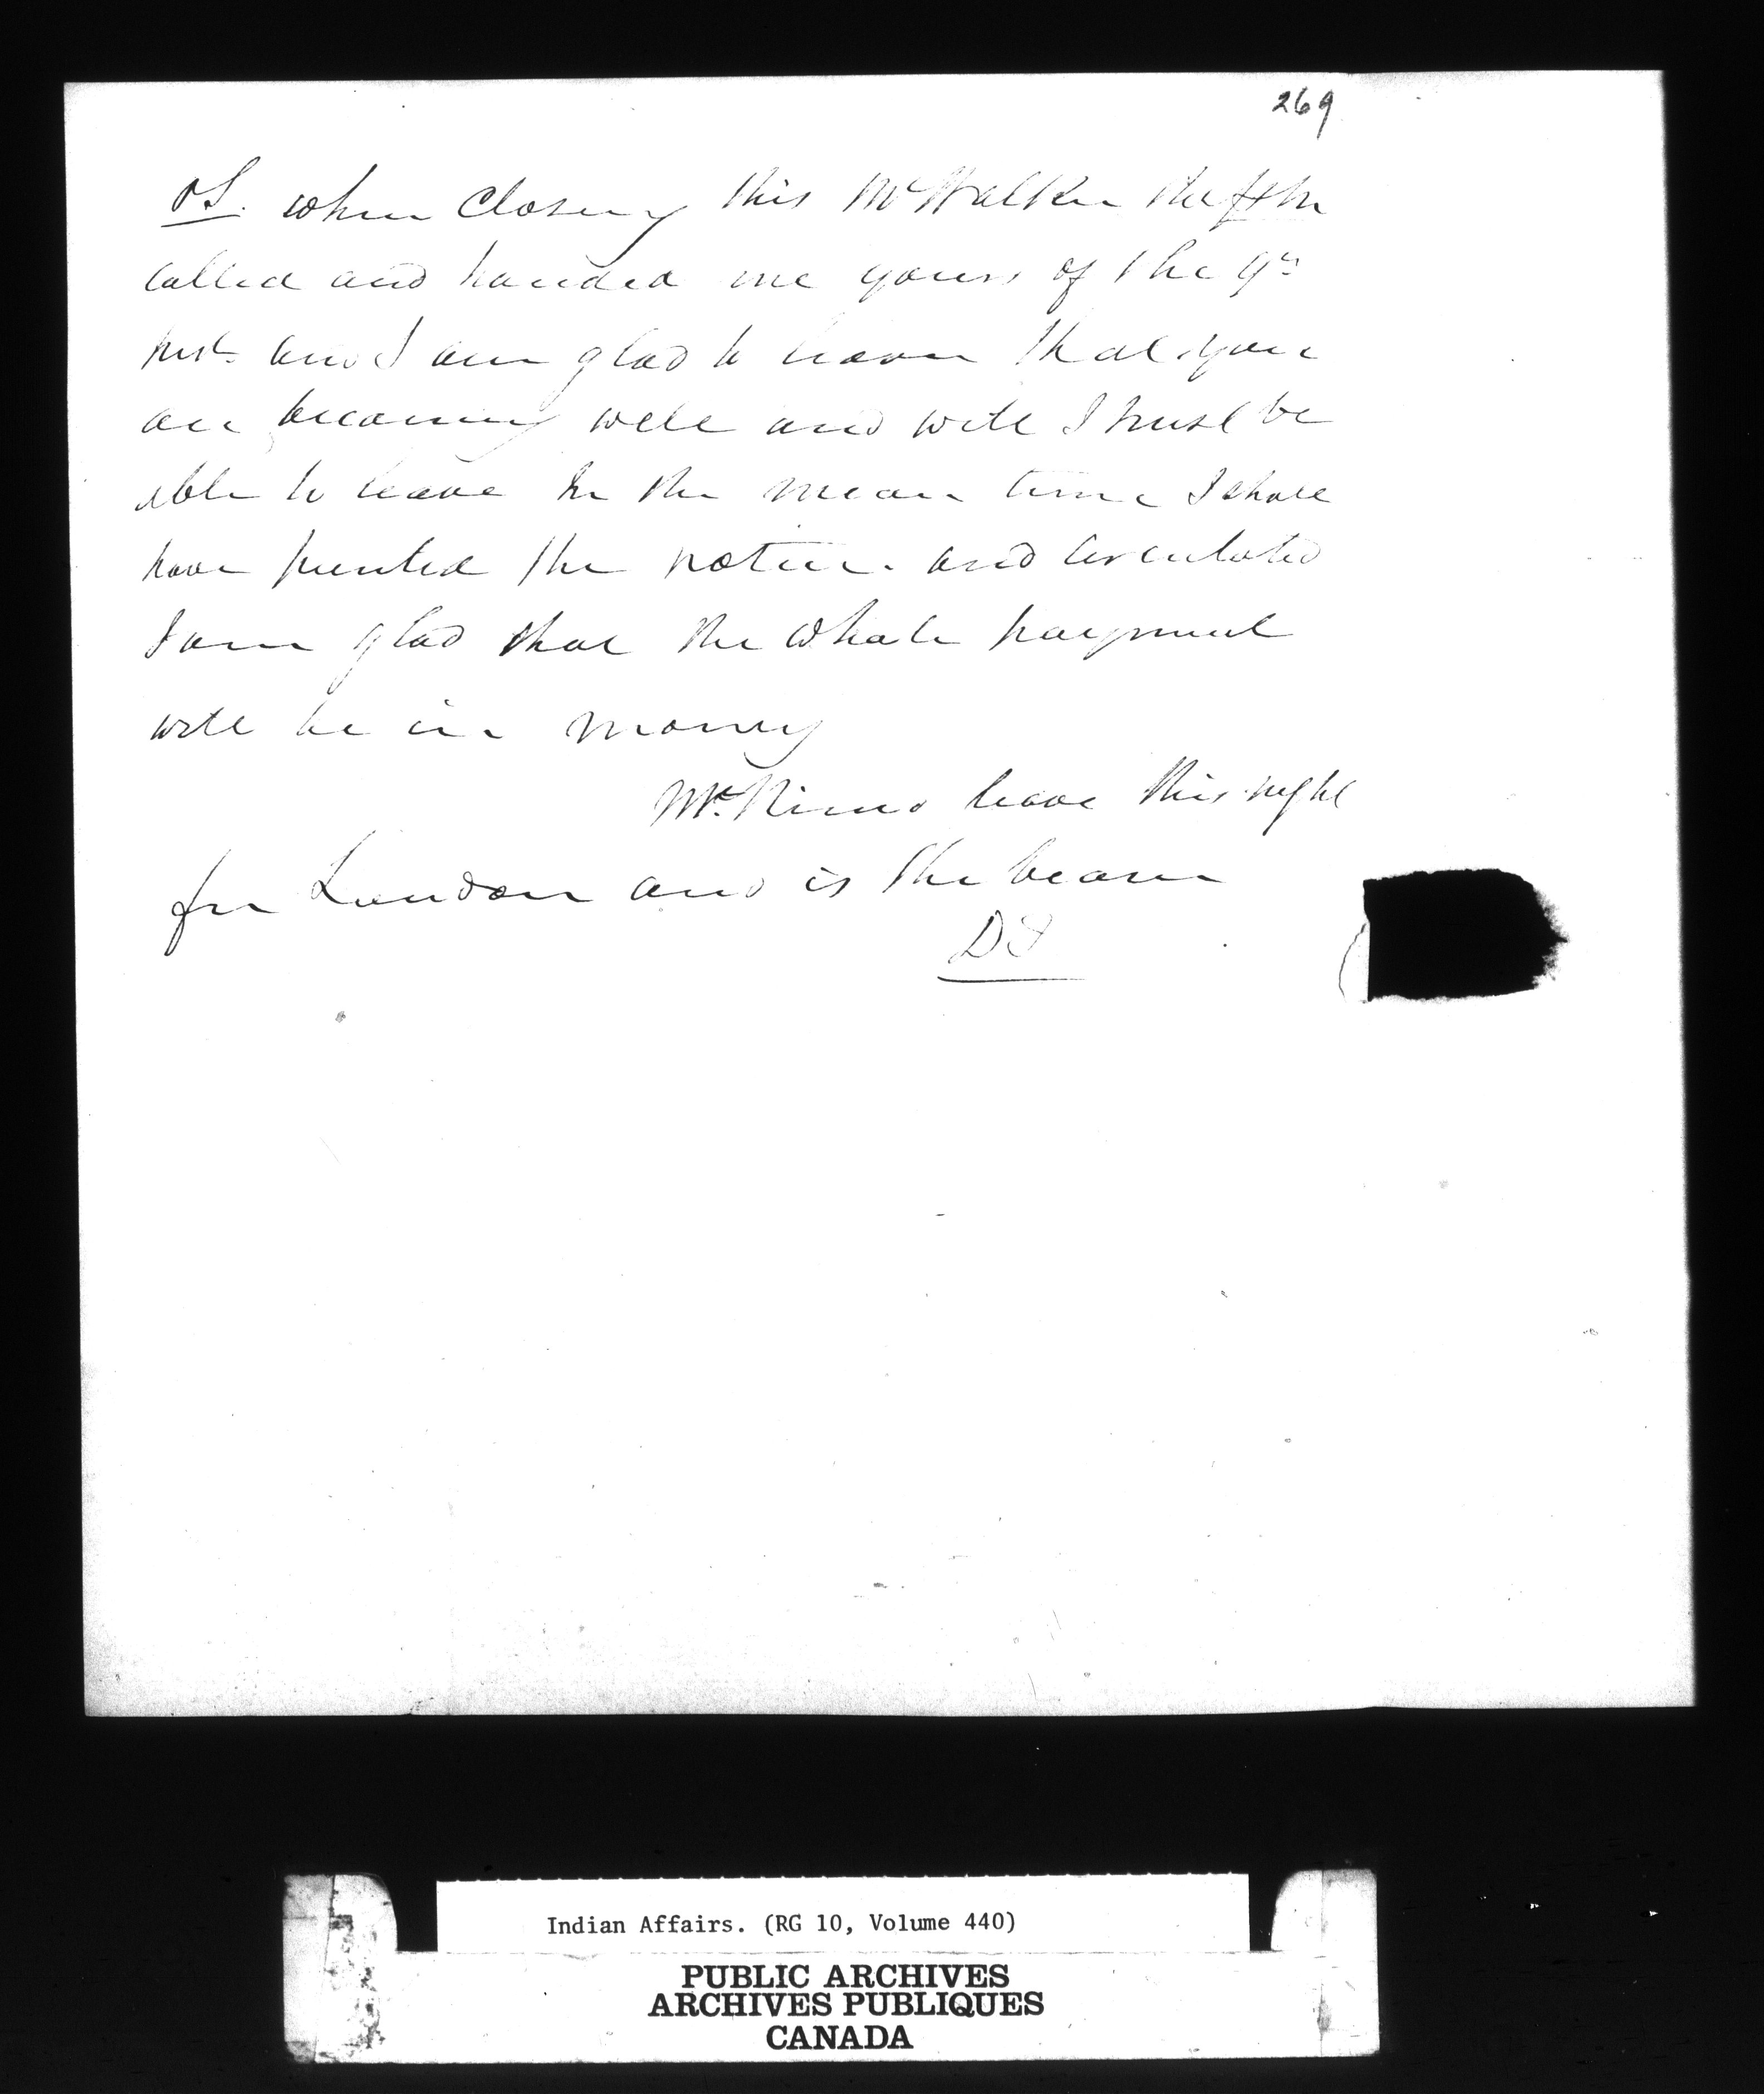 269
PS. when closing this Mr Walker the
called and handed me yours of the 9th
inst and I am glad to learn that you
are becoming well and will I trust be
able to leave In the mean time I shall
have printed the notice and circulated
I am glad that the whole payment
will be in money
Mr. leave this night
for London and is the bearer
Indian Affairs. (RG 10, Volume 440)
PUBLIC ARCHIVES
ARCHIVES PUBLIQUES
CANADA